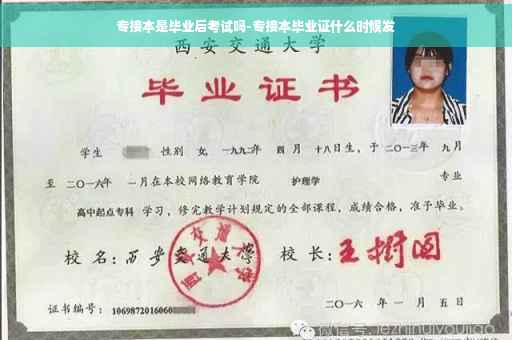 专接本是毕业后考试吗-专接本毕业证什么时候发
西安交通大学
毕业证书
学生 性别 女, 一九九二年 四 月 十八日生, 于 二〇一三年 九 月
至 二〇一六年 一月在本校网络教育学院 护理学 专业
高中起点专科 学习, 修完教学计划规定的全部课程, 成绩合格, 准予毕业。
校 名: 西安交通大学 校 长: 王树国
西安交通大学
证书编号: 1069872016060
二〇一六 年 一 月 五 日
微信号: jezhihuiyoujiao